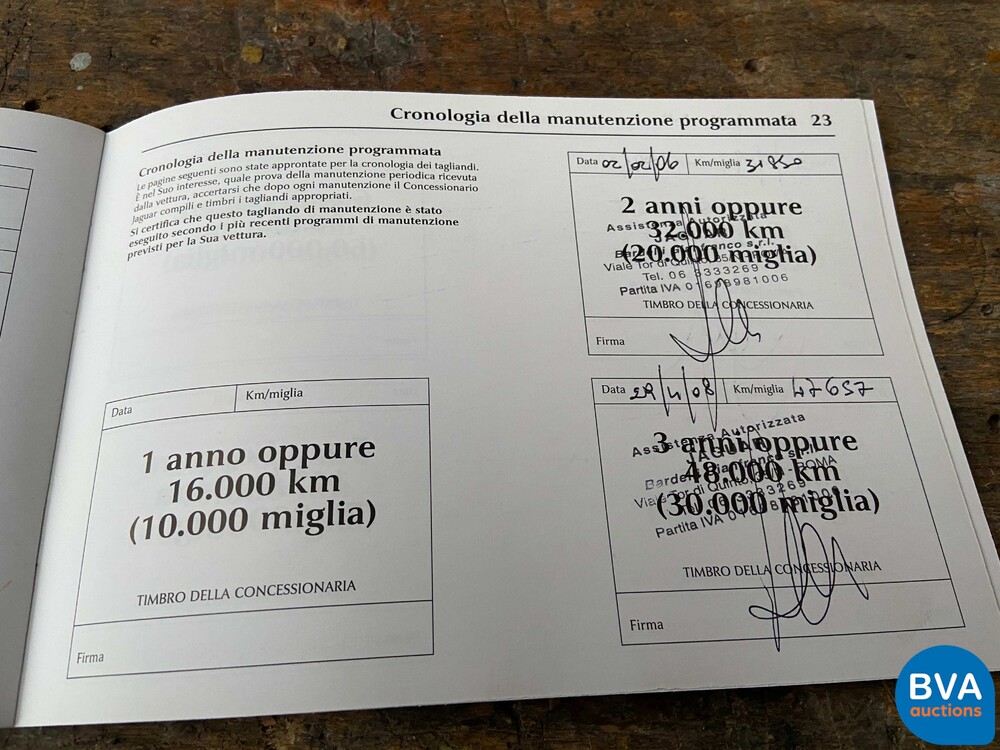 Cronologia della manutenzione programmata 23
Cronologia della manutenzione programmata
Le pagine seguenti sono state approntate per la cronologia dei tagliandi.
È nel Suo interesse, quale prova della manutenzione periodica ricevuta
dalla vettura, accertarsi che dopo ogni manutenzione il Concessionario
Jaguar compili e timbri i tagliandi appropriati.
Si certifica che questo tagliando di manutenzione è stato
eseguito secondo i più recenti programmi di manutenzione
previsti per la Sua vettura.
Data
Km/miglia
1 anno oppure
16.000 km
(10.000 miglia)
TIMBRO DELLA CONCESSIONARIA
Firma
Data 02/02/06 Km/miglia 31850
2 anni oppure
Assistenza Autorizzata
32.000 km
(20.000 miglia)
Viale Tor di Quinto
Tel. 06 3333269
Partita IVA
TIMBRO DELLA CONCESSIONARIA
Firma
Data Km/miglia 47657
Assistenza Autorizzata
3 anni oppure
48.000 km
(30.000 miglia)
Partita IVA
TIMBRO DELLA CONCESSIONARIA
Firma
BVA
auctions